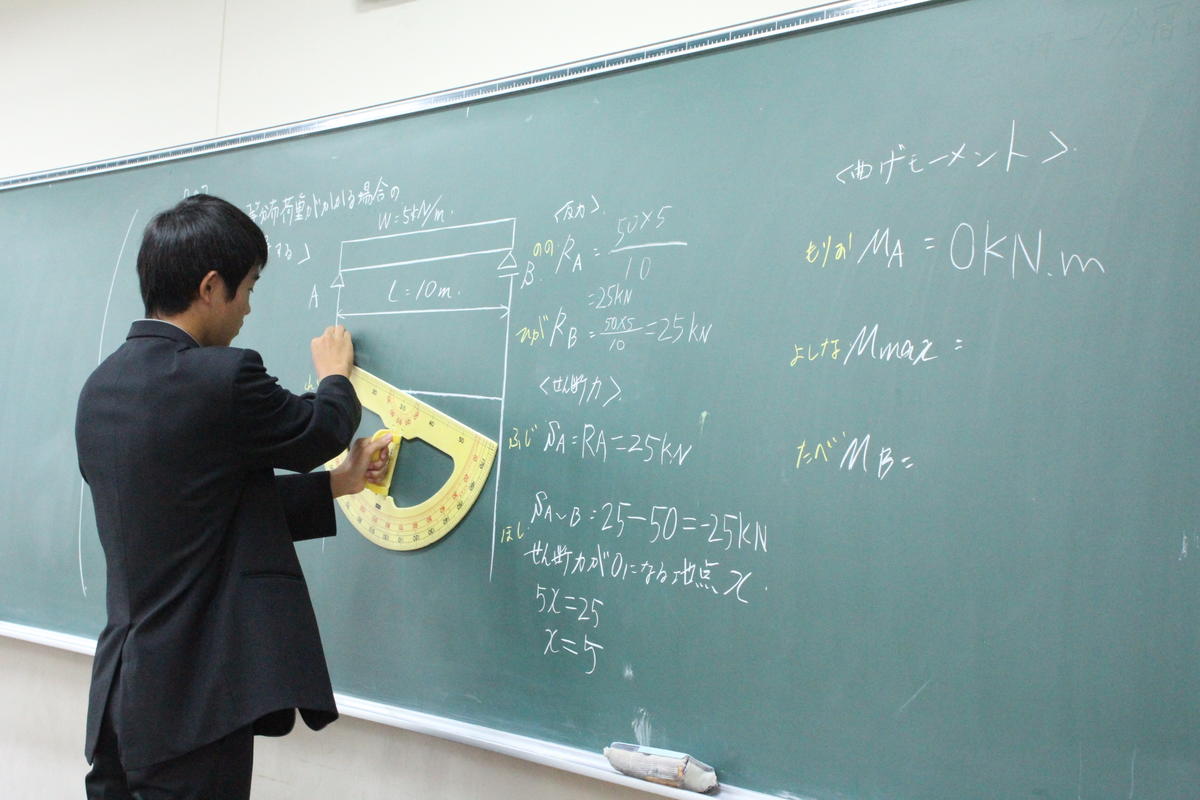 分布荷重がかかる場合の
する」
W=5kN/m.
A
B
L=10m.
<反力>.
のの RA = 50×5/10
=25kN
ひが RB = 50×5/10 =25kN
<せん断力>.
ふじ SA=RA=25kN
ほし SA~B=25-50=-25kN
せん断力が0になる地点x.
5x=25
x=5
<曲げモーメント>.
もりお MA = 0kN.m
よしなが Mmax =
たべ MB=